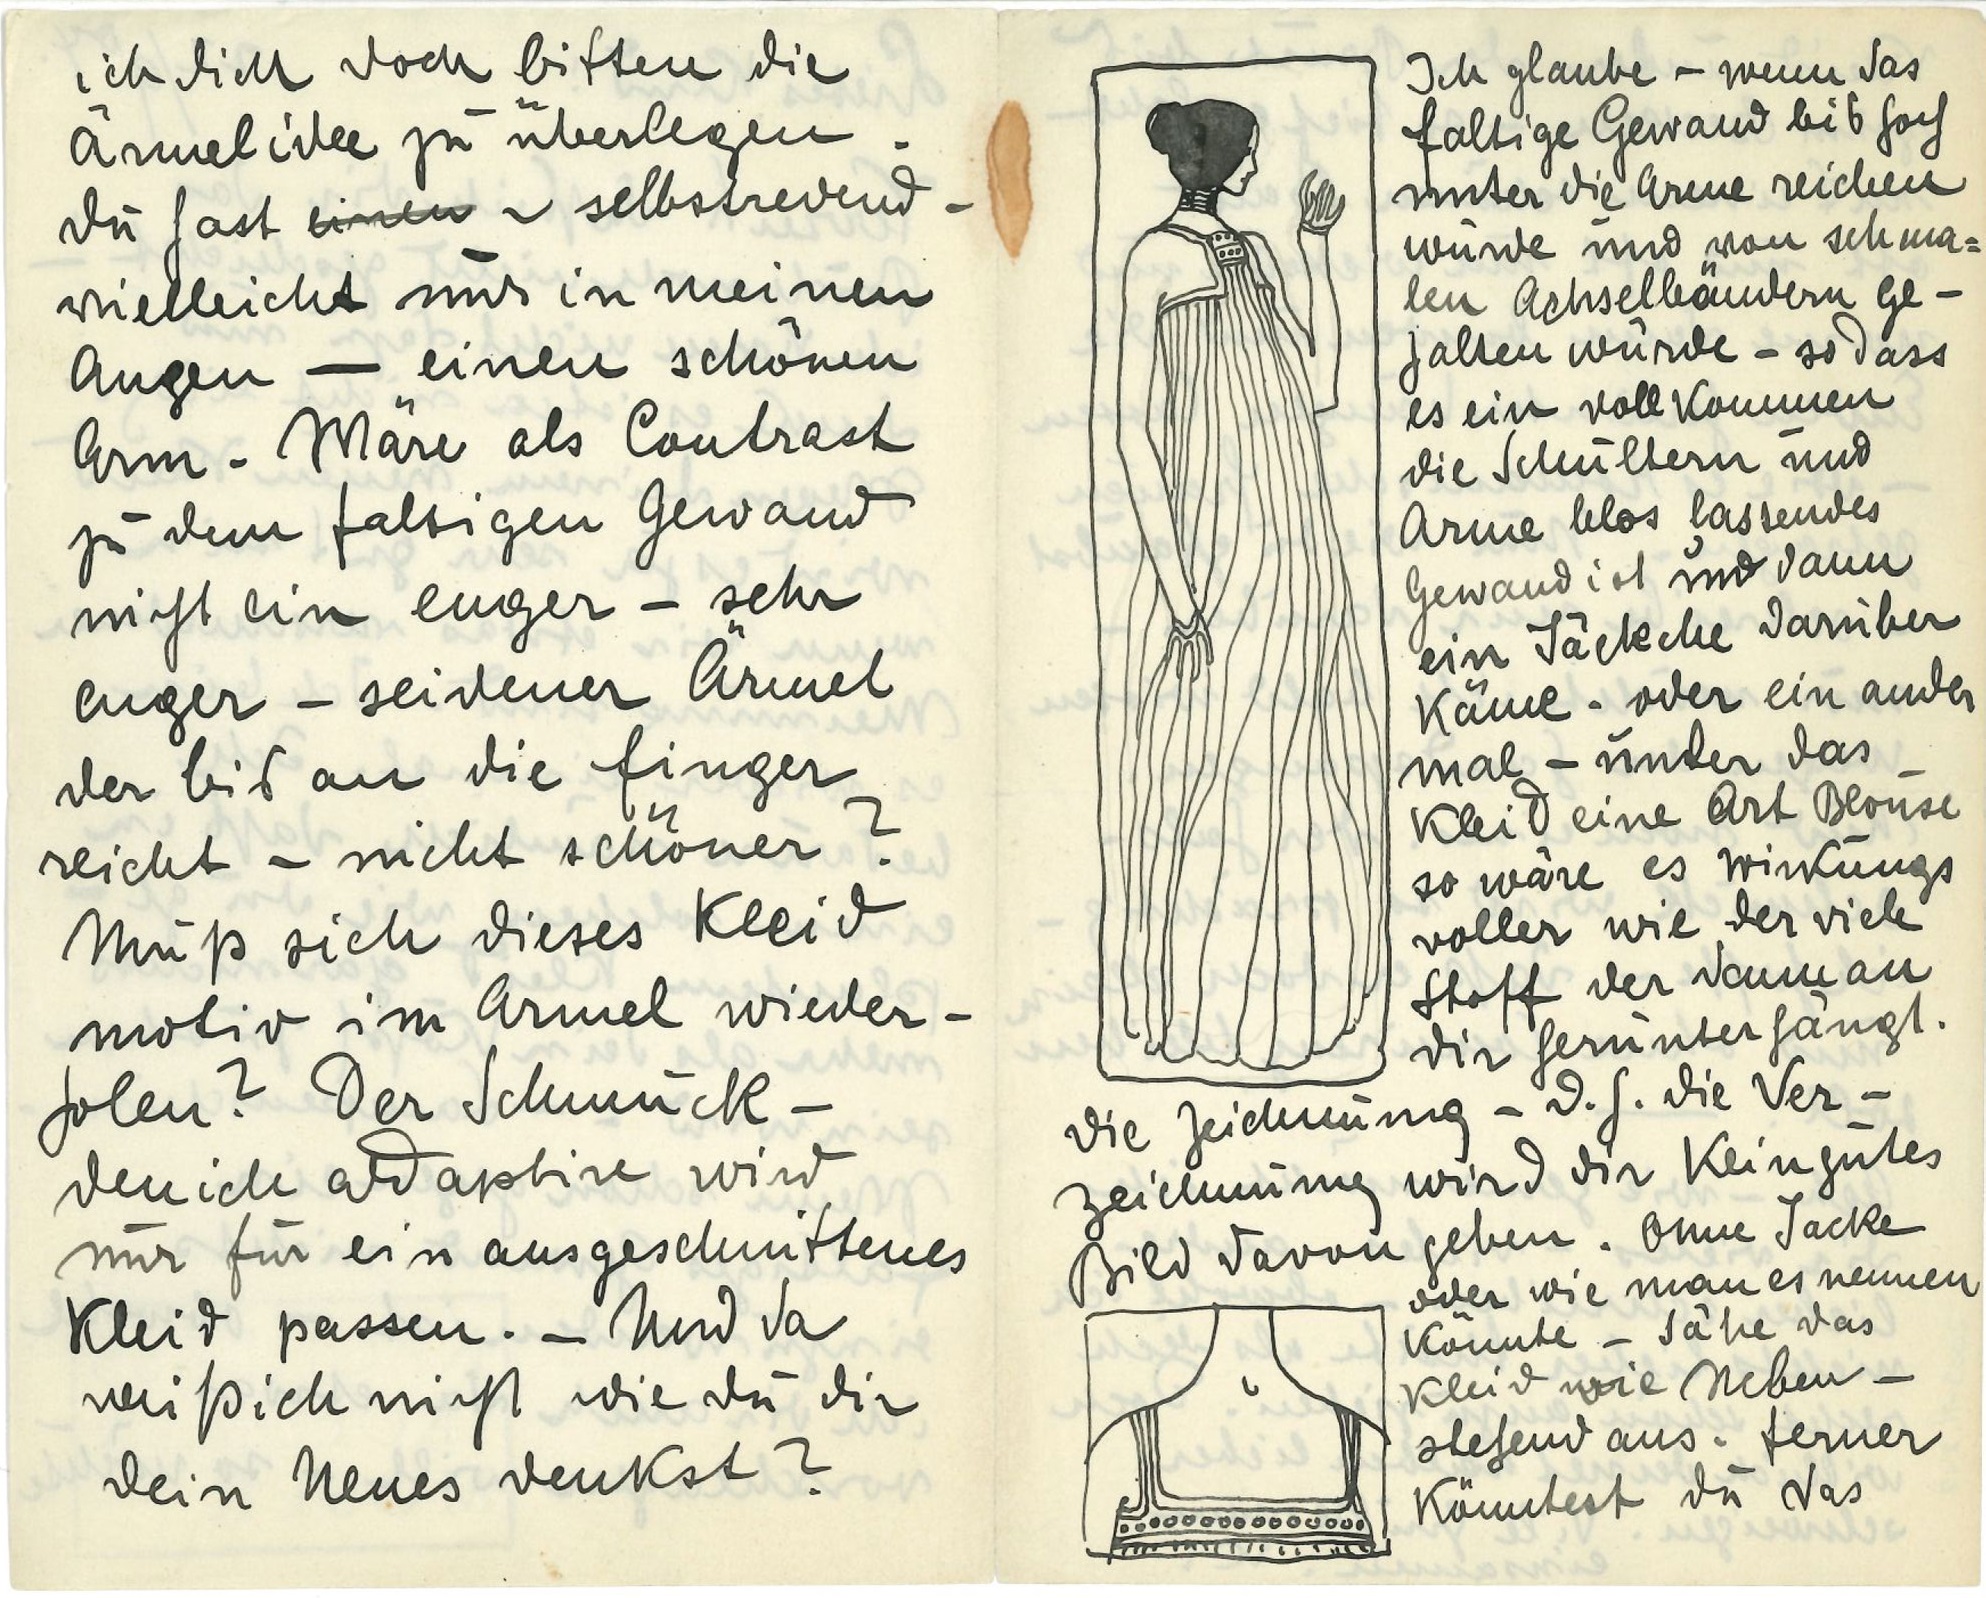 ich dich doch bitten die
Ärmelidee zu überlegen.
du hast einen – selbstredend –
vielleicht nur in meinen
Augen — einen schönen
Arm. Wäre als Contrast
zu dem faltigen Gewand
nicht ein enger – sehr
enger – seidener Ärmel
der bis an die Finger
reicht – nicht schöner?
Muß sich dieses Kleid
motiv im Armel wieder-
holen? Der Schmuck –
den ich addaptire wird
nur für ein ausgeschnittenes
Kleid passen. – Und da
weiß ich nicht wie du dir
dein Neues denkst?
Ich glaube – wenn das
faltige Gewand bis hoch
unter die Arme reichen
würde und von schma=
len Achselbändern ge-
halten würde – so dass
es ein vollkommen
die Schultern und
Arme blos lassendes
Gewand ist und dann
ein Jäckche darüber
käme. oder ein ander
mal – unter das
Kleid eine Art Blouse
so wäre es wirkungs
voller wie der viele
Stoff der dann an
dir herunterhängt.
die Zeichnung – d. h. die Ver-
zeichnung wird dir kein gutes
Bild davon geben. Ohne Jacke
oder wie man es nennen
könnte – sähe das
Kleid wie Neben-
stehend aus. ferner
könntest du das